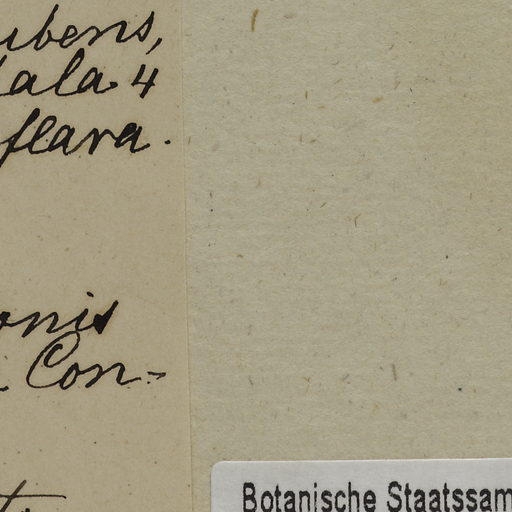 ubens,
tala 4
flava.
onis
. Con-
Botanische Staatssam